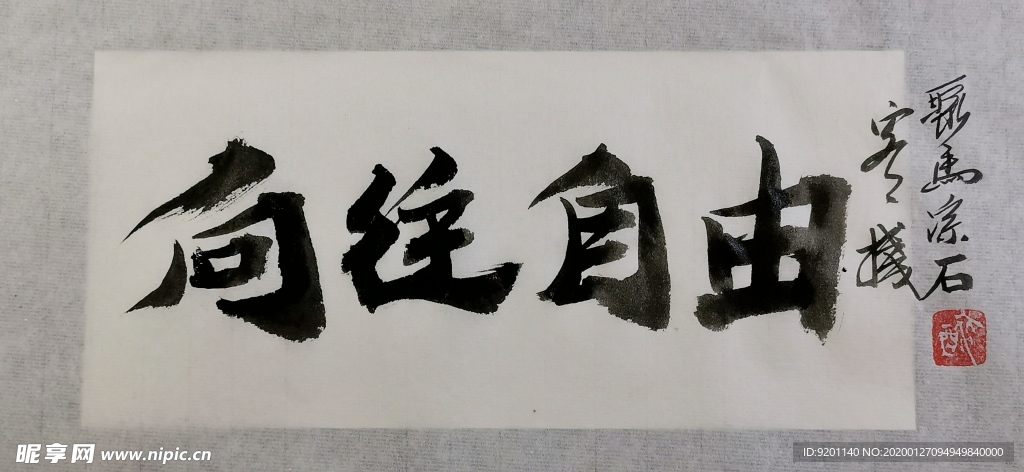 向往自由
聚馬宗石
客棧
昵享网 www.nipic.cn
ID:9201140 NO:20200127094949840000